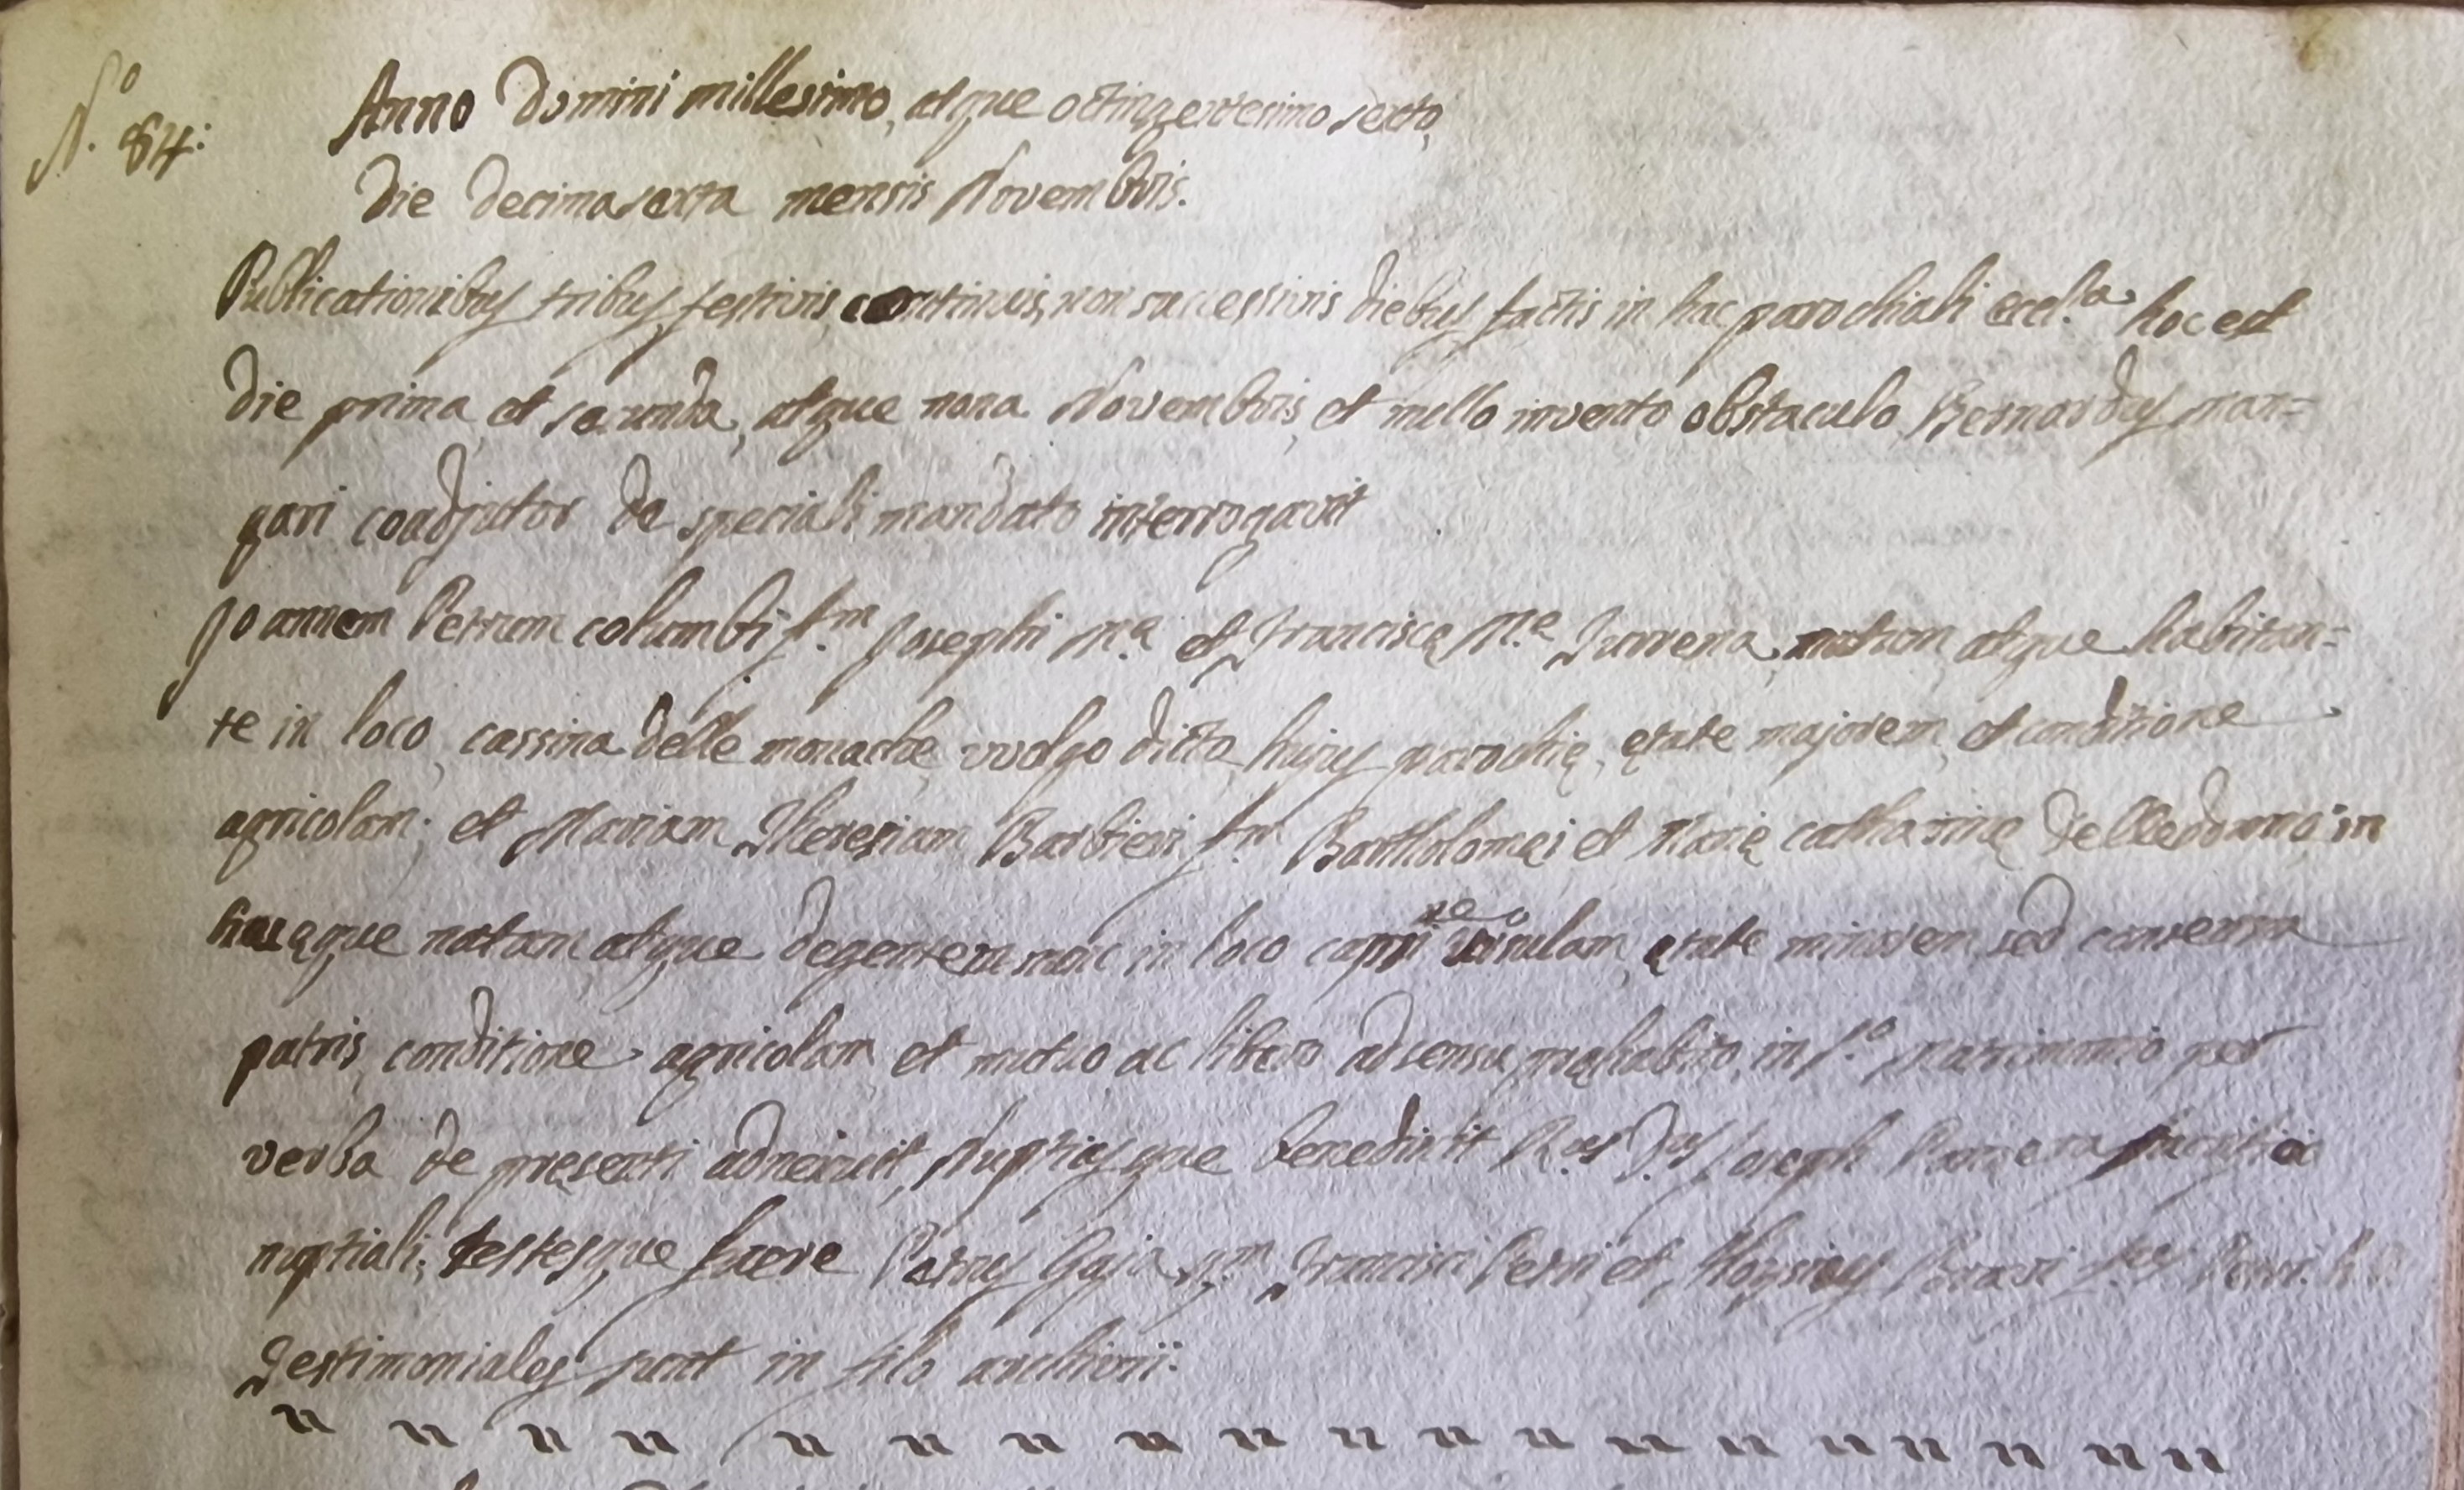 N.o 84:
Anno Domini millesimo, atque octingentesimo sexto,
Die decimasexta mensis Novembris.
Publicationibus tribus festivis continuis, non successivis diebus factis in hac parochiali eccl.a hoc est
die prima et secunda, atque nona Novembris, et nullo invento obstaculo Bernardus man=
gari coadjutor de speciali mandato interrogavit
Joannem Petrum columbi f.m Josephi M.a et Franciscę M.ę natum atque habitan=
te in loco, cassina delle monache vulgo dicto, hujus parochię, ętate majorem, et conditione
agricolam; et Mariam Theresiam Barbieri f.m Bartholomęi et Marię catharinę Delledonne in
atque natam atque degentem nunc in loco ętate minorem sed consensu
patris, conditione agricolam et mutuo ac libero adsensu pręhabito, in f.o matrimonio per
verba de pręsenti adnexuit, Nuptiasque benedixit R.us D.us Joseph
nuptiali; testesque fuere Petrus Gaja q.m Francisci Petri et Aloysius
Testimoniales sunt in filo archivii: